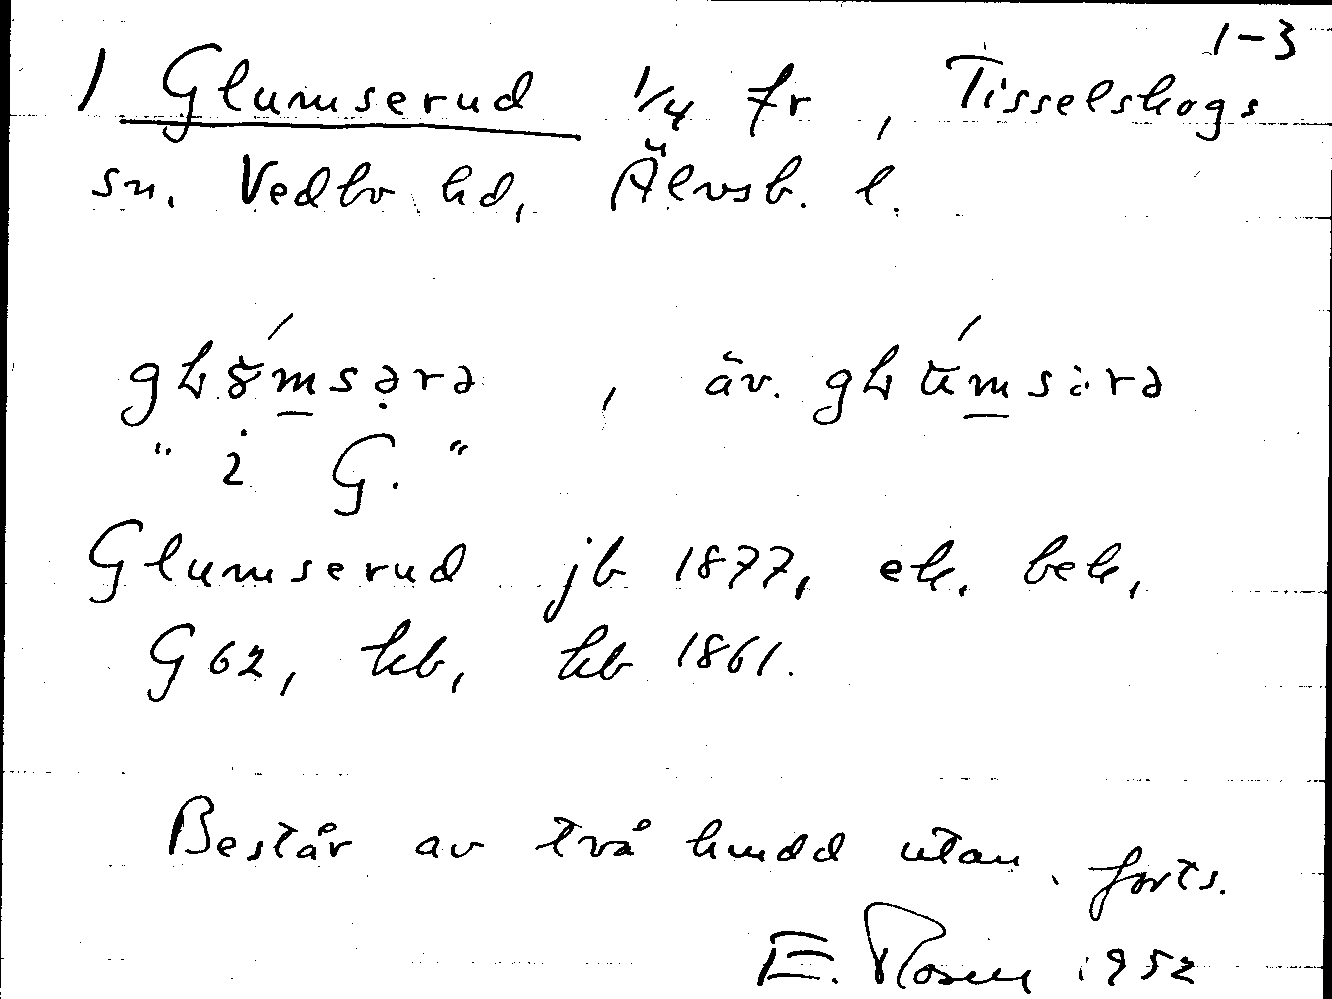 1-3
1 Glumserud 1/4 fr, Tisselskogs
sn. Vedbo hd, Älvsb. l.
, äv.
"i G."
Glumserud jb 1877, ek. bek,
G 62, kb, hb 1861.
Består av två hmdd utan forts.
E. Rosen 1952